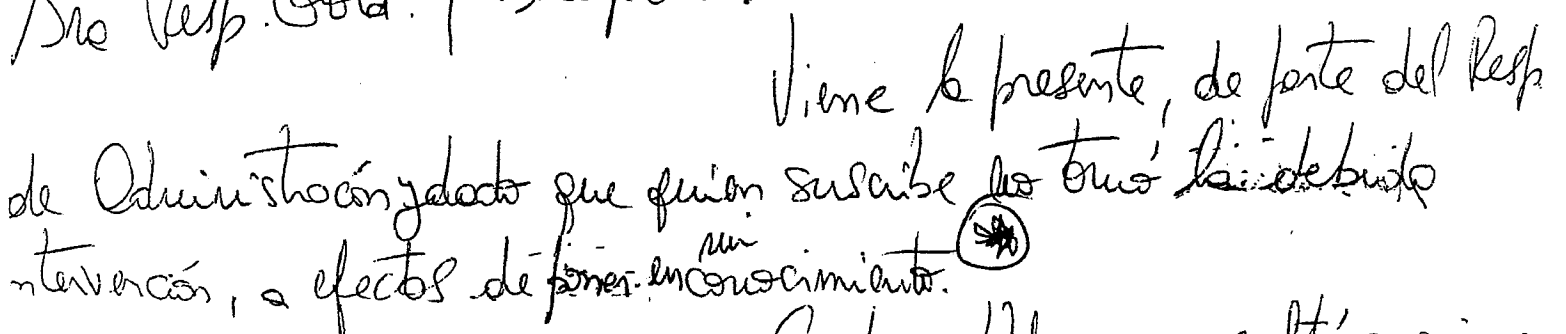 Sra Resp.
Viene la presente, de parte del Resp
de Administración y dado que quien suscribe no tomó la debida
ntervención, a efectos de poner en mi conocimiento.